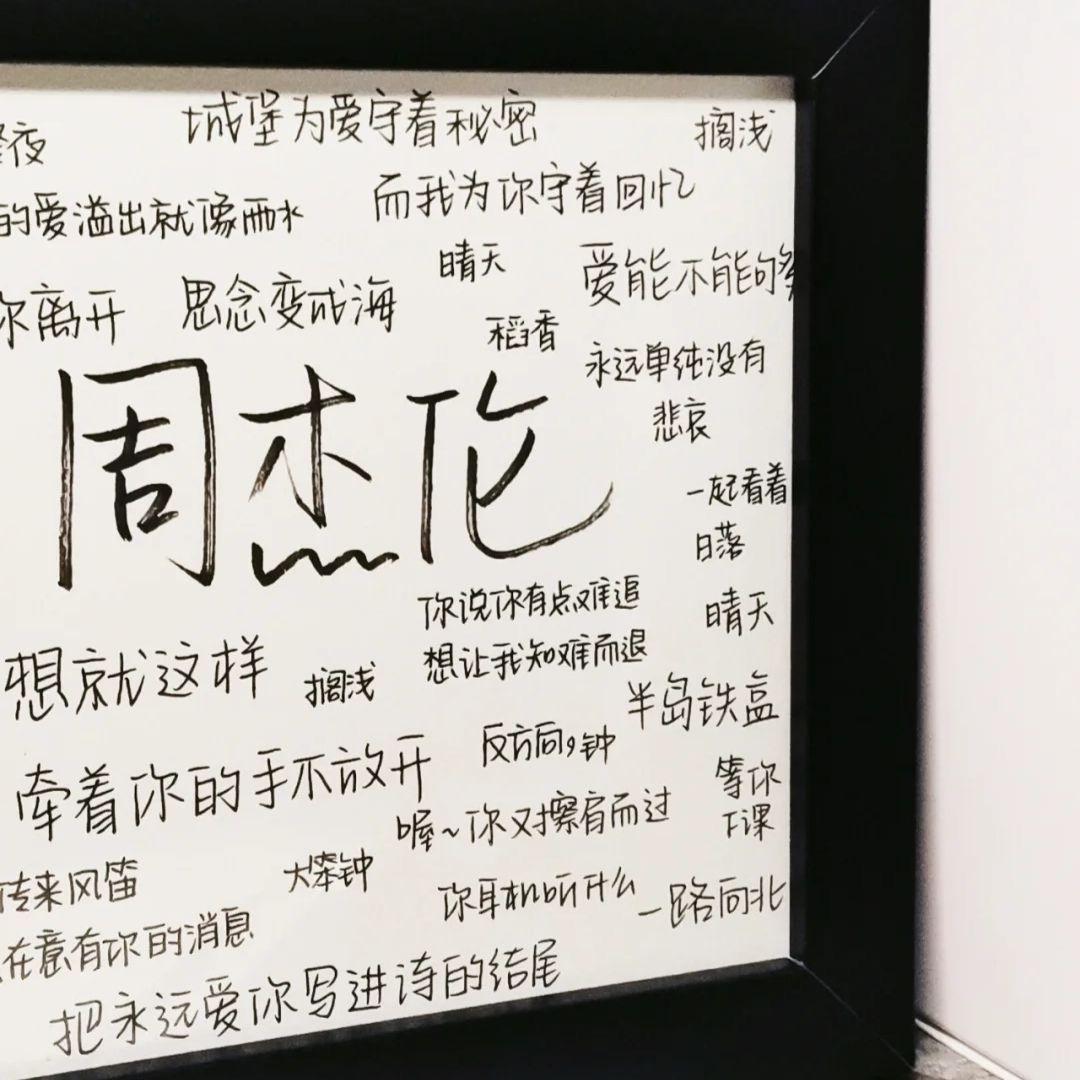 夜
城堡为爱守着秘密
搁浅
的爱溢出就像雨水
而我为你守着回忆
晴天
爱能不能够
你离开
思念变成海
稻香
永远单纯没有
悲哀
周杰伦
一起看着
日落
晴天
你说你有点难追
想让我知难而退
想就这样
搁浅
半岛铁盒
反方向9钟
牵着你的手不放开
等你
下课
喔~你又擦肩而过
传来风笛
大笨钟
你耳机听什么
一路向北
在意有你的消息
把永远爱你写进诗的结尾